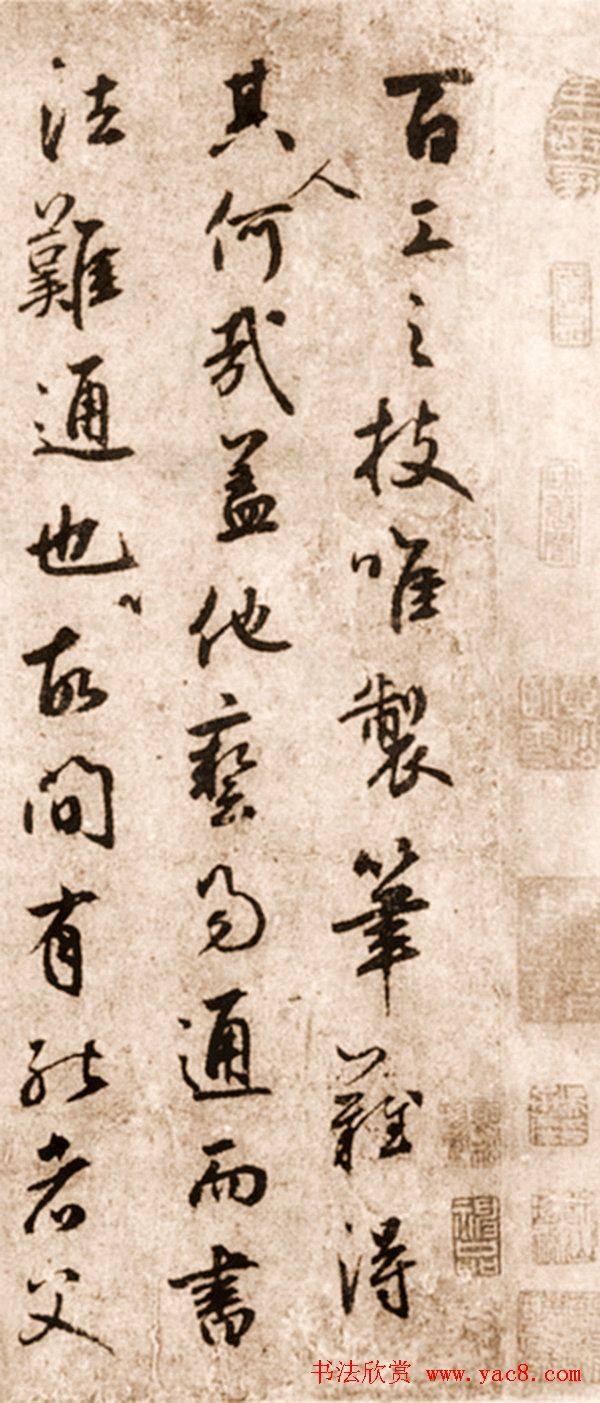 百工之技唯製筆難得
其人何哉盖他藝易通而書
法難通也故間有能者父
书法欣赏 www.yac8.com